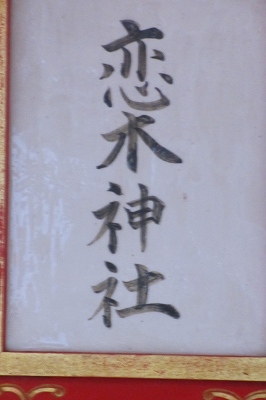 恋木神社